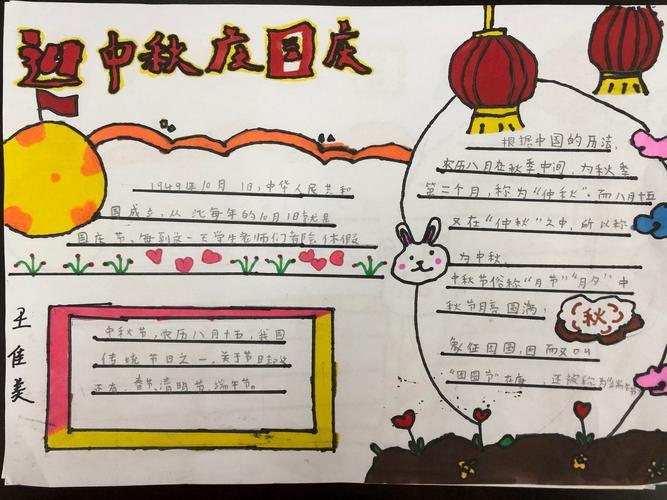 迎中秋庆国庆
1949年10月1日,中华人民共和
国成立,从此每年的10月1日就是
国庆节,每到这一天学生老师们都会休假
王佳美
中秋节,农历八月十五,我国
传统节日之一,关于节日
还有 春节、清明节、端午节。
根据中国的历法,
农历八月在秋季中间,为秋季
第二个月,称为“仲秋”而八月十五
又在“仲秋”之中,所以称
为中秋。
中秋节俗称“月节”“月夕”中
秋节月亮圆满,
秋
象征团圆,因而又叫
“团圆节”在唐,还被称为端午节